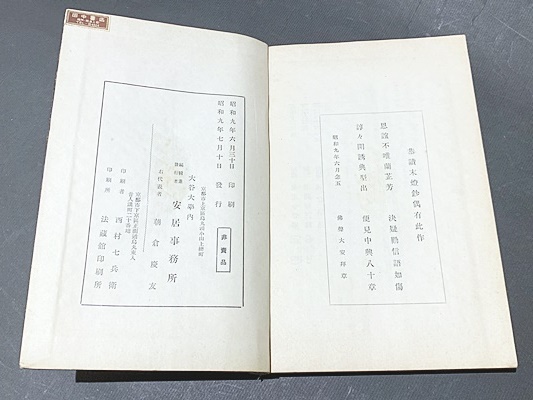 恭讀末燈鈔偶有此作
思說不唯蘭芷芳　決疑勸信語如傷
諄々開誘典型出　便見中興八十章
昭和九年六月念五
大安拜草
昭和九年六月三十日　印刷
昭和九年七月十日　發行
非賣品
京都市上京區烏丸通小山上總町
大谷大學內
編輯兼
發行者
安居事務所
右代表者　朝倉慶友
印刷者　西村七兵衛
印刷所　法藏館印刷所